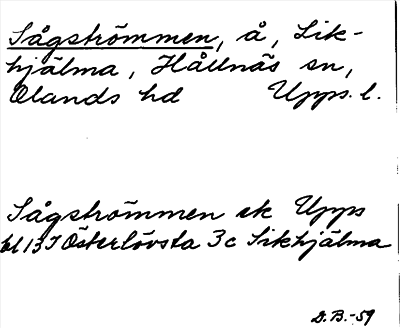 Sågströmmen, å, Sik-
hjälma, Hållnäs sn,
Olands hd Upps. l.
Sågströmmen ek Upps
bl 137 Österlövsta 3c Sikhjälma
D.B.-59